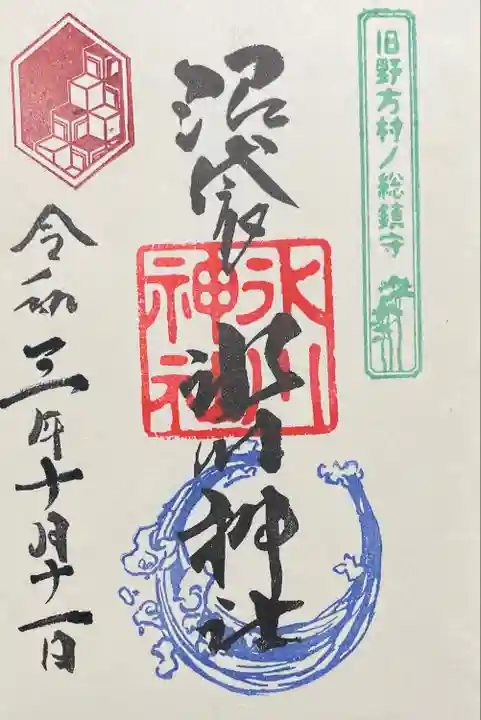 旧野方村ノ総鎮守
沼袋
氷川神社
氷川
神社
令和三年十月十一日